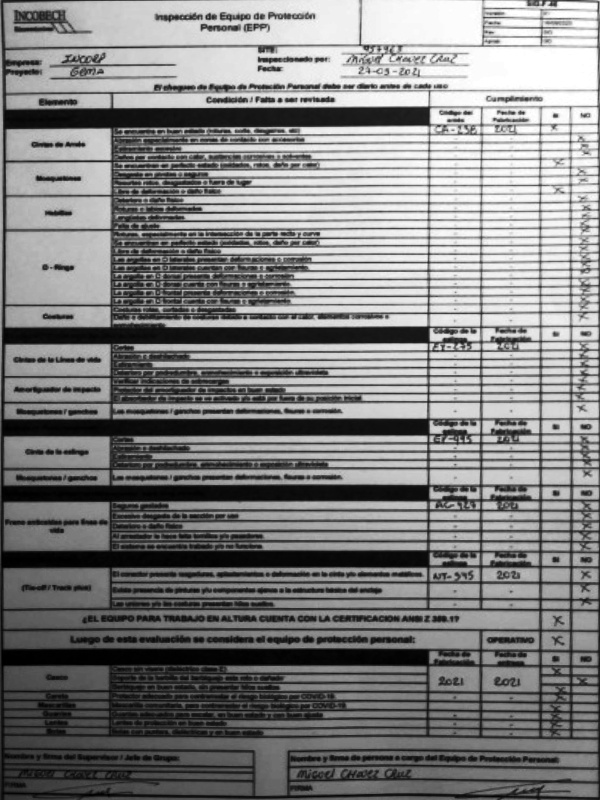 INCOBECH
Inspección de Equipo de Protección Personal (EPP)
SIG-F 48
Empresa: INCORP
Proyecto: GEMA
SITE: 957963
Inspeccionado por: Miguel Chavez Cruz
Fecha: 27-03-2021
El chequeo de Equipo de Protección Personal debe ser diario antes de cada uso
Elemento Condición / Falta a ser revisada Cumplimiento
Código del arnés Fecha de Fabricación SI NO
Cintas de Arnés
Se encuentra en buen estado (roturas, corte, desgarros, etc) CA-238 2021 X
Abrasión especialmente en zonas de contacto con accesorios - - X
Estiramiento excesivo - - X
Daños por contacto con calor, sustancias corrosivas o solventes - - X
Mosquetones
Se encuentran en perfecto estado (oxidados, rotos, daño por calor) - - X
Desgaste en pivotes o seguros - - X
Resortes rotos, desgastados o fuera de lugar - - X
Hebillas
Libre de deformación o daño físico - - X
Deterioro o daño físico - - X
Roturas o lados deformados - - X
Lengüetas deformadas - - X
Falta de ajuste - - X
D - Rings
Roturas, especialmente en la intersección de la parte recta y curva - - X
Se encuentran en perfecto estado (oxidados, rotos, daño por calor) - - X
Libre de deformación o daño físico - - X
Las argollas en D laterales presentan deformaciones o corrosión - - X
Las argollas en D laterales cuentan con fisuras o agrietamiento. - - X
La argolla en D dorsal presenta deformaciones o corrosión - - X
La argolla en D dorsal cuenta con fisuras o agrietamiento. - - X
La argolla en D frontal presenta deformaciones o corrosión. - - X
La argolla en D frontal cuenta con fisuras o agrietamiento. - - X
Costuras
Costuras rotas, cortadas o desgastadas - - X
Daño o debilitamiento de costuras debido a contacto con el calor, elementos corrosivos o enmohecimiento - - X
Código de la eslinga Fecha de Fabricación SI NO
Cintas de la Línea de vida
Cortes EY-275 2021 X
Abrasión o deshilachado - - X
Estiramiento - - X
Deterioro por podredumbre, enmohecimiento o exposición ultravioleta - - X
Amortiguador de impacto
Verificar indicaciones de sobrecargas - - X
Protector del amortiguador de impactos en buen estado - - X
El absorbedor de impacto se va activado y/o está por fuera de su posición inicial - - X
Mosquetones / ganchos Los mosquetones / ganchos presentan deformaciones, fisuras o corrosión. - - X
Código de la eslinga Fecha de Fabricación SI NO
Cinta de la eslinga
Cortes EP-495 2021 X
Abrasión o deshilachado - - X
Estiramiento - - X
Deterioro por podredumbre, enmohecimiento o exposición ultravioleta - - X
Mosquetones / ganchos Los mosquetones / ganchos presentan deformaciones, fisuras o corrosión. - - X
Código de la eslinga Fecha de Fabricación SI NO
Freno anticaídas para línea de vida
Seguros gastados AC-927 2021 X
Excesivo desgaste de la sección por uso - - X
Deterioro o daño físico - - X
Al arrestador le hace falta tornillos y/o pasadores. - - X
El sistema se encuentra trabado y/o no funciona. - - X
Código de la eslinga Fecha de Fabricación SI NO
(Tie-off / Track plus)
El conector presenta rasgaduras, aplastamientos o deformación en la cinta y/o elementos metálicos. NT-545 2021 X
Existe presencia de pinturas y/u componentes ajenos a la estructura básica del anclaje - - X
Las uniones y/o las costuras presentan hilos sueltos. - - X
¿EL EQUIPO PARA TRABAJO EN ALTURA CUENTA CON LA CERTIFICACION ANSI Z 359.1? X
Luego de esta evaluación se considera el equipo de protección personal: OPERATIVO X
Fecha de Fabricación Fecha de entrega SI NO
Casco
Casco sin visera (dieléctrico clase E) X
Soporte de la barbilla del barbiquejo esta roto o dañador 2021 2021 X
Barbiquejo en buen estado, sin presentar hilos sueltos X
Careta Protector adecuado para contrarrestar el riesgo biológico por COVID-19. - - X
Mascarillas Mascarilla comunitaria, para contrarrestar el riesgo biológico por COVID-19. X
Guantes Guantes adecuados para escalar, en buen estado y con buen ajuste - - X
Lentes Lentes de protección en buen estado - - X
Botas Botas con puntera, dieléctricas y en buen estado - - X
Nombre y firma del Supervisor / Jefe de Grupo:
Miguel Chavez Cruz
FIRMA
Nombre y firma de persona a cargo del Equipo de Protección Personal:
Miguel Chavez Cruz
FIRMA